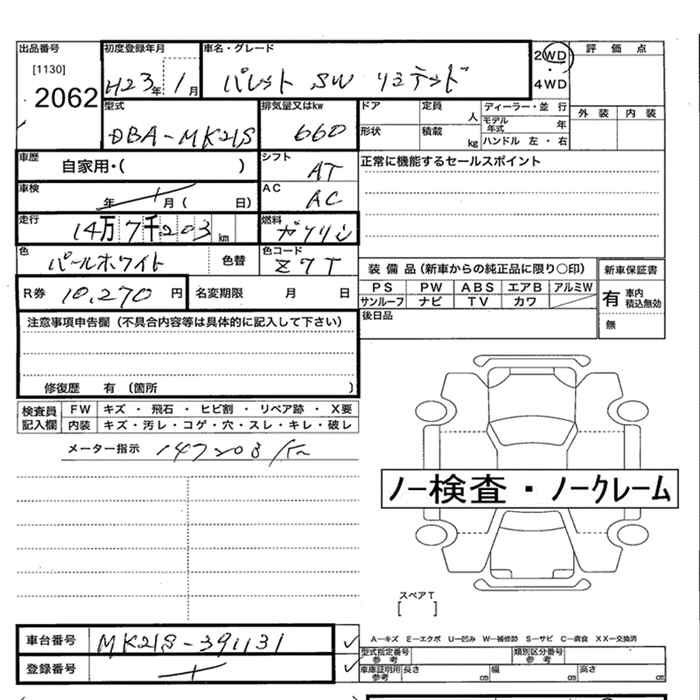 出品番号
[1130]
2062
初度登録年月
H23年 1月
車名・グレード
パレット SW リミテッド
2WD
・
4WD
評価点
外装 内装
型式
DBA-MK21S
排気量又はkw
660
ドア
定員 人
形状
積載 kg
ディーラー・並行
モデル年式 年
ハンドル 左・右
車歴
自家用・( )
シフト
AT
正常に機能するセールスポイント
車検
年 月( 日)
AC
AC
走行
14万7千203km
燃料
ガソリン
色
パールホワイト
色替
色コード
Z7T
装備品(新車からの純正品に限り○印)
新車保証書
PS PW ABS エアB アルミW
サンルーフ ナビ TV カワ
有 車内積込無効
無
R券 10,270円
名変期限 月 日
後日品
注意事項申告欄(不具合内容等は具体的に記入して下さい)
修復歴 有(箇所 )
検査員記入欄
FW キズ・飛石・ヒビ割・リペア跡・X要
内装 キズ・汚レ・コゲ・穴・スレ・キレ・破レ
メーター指示 147203km
ノー検査・ノークレーム
スペアT
[ ]
車台番号 MK21S-391131
登録番号
A-キズ E-エクボ U-凹み W-補修跡 S-サビ C-腐食 XX-交換済
型式指定番号 参考
類別区分番号 参考
車庫証明用 参考
長さ cm 幅 cm 高さ cm